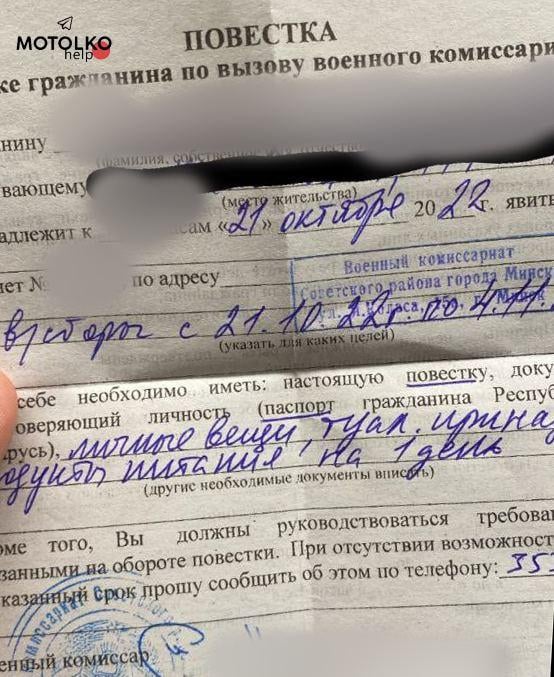 MOTOLKO
help
ПОВЕСТКА
ке гражданина по вызову военного комиссари
нину
(фамилия, собственное имя, отчество
вающему
(место жительства)
адлежит к сам «21» октября 2022 г. явить
ет № по адресу
Военный комиссариат
Советского района города Минск
в/сборы с 21.10.22г. по 4.11.
(указать для каких целей)
себе необходимо иметь: настоящую повестку, доку
оверяющий личность (паспорт гражданина Респуб
русь), личные вещи, туал. принад
одукты питания на 1 день
(другие необходимые документы вписать)
оме того, Вы должны руководствоваться требован
занными на обороте повестки. При отсутствии возможност
казанный срок прошу сообщить об этом по телефону: 35
енный комиссар